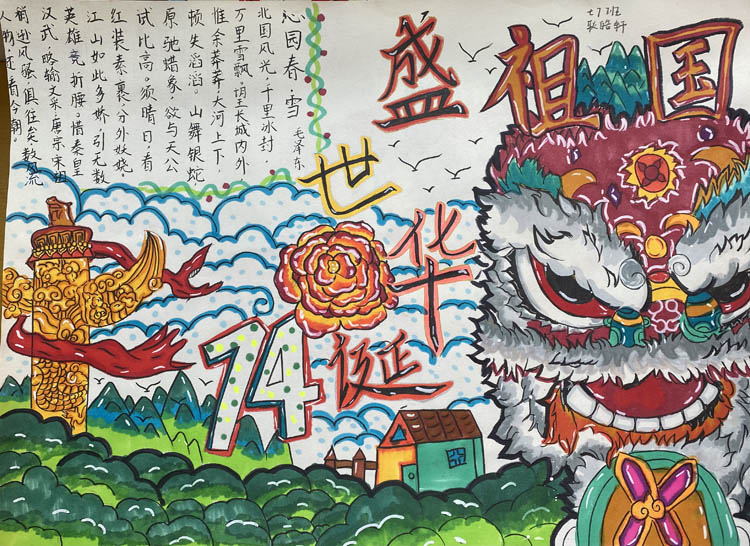 沁园春·雪
毛泽东
北国风光,千里冰封,
万里雪飘。望长城内外
惟余莽莽,大河上下,
顿失滔滔。山舞银蛇
原驰蜡象,欲与天公
试比高。须晴日,看
红装素裹,分外妖娆。
江山如此多娇,引无数
英雄竞折腰。惜秦皇
汉武,略输文采,唐宗宋祖
稍逊风骚。俱往矣,数风流
人物,还看今朝。
祖国
盛世华诞
74